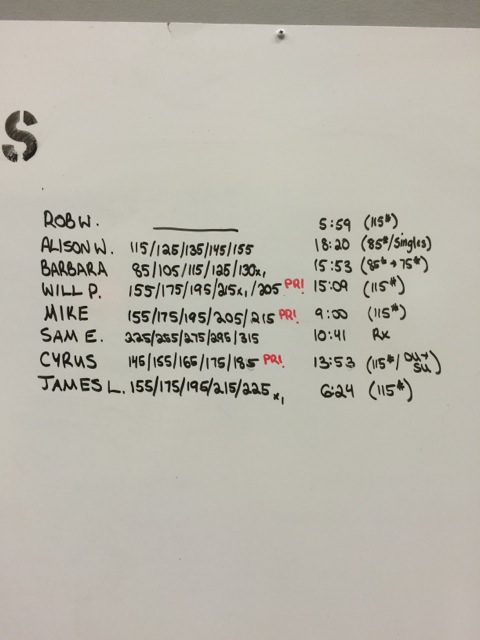 S
ROB W. 5:59 (115#)
ALISON W. 115/125/135/145/155 18:20 (85#/Singles)
BARBARA 85/105/115/125/130x1 15:53 (85#→75#)
WILL P. 155/175/195/215x1/205 PR! 15:09 (115#)
MIKE 155/175/195/205/215 PR! 9:00 (115#)
SAM E. 225/255/275/295/315 10:41 Rx
CYRUS 145/155/165/175/185 PR! 13:53 (115#/DU+SU)
JAMES L. 155/175/195/215/225x1 6:24 (115#)